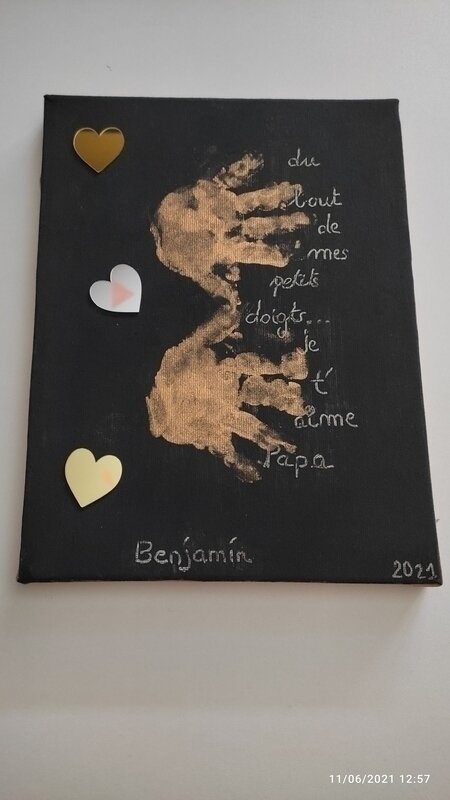 du
bout
de
mes
petits
doigts...
je
t'
aime
Papa
Benjamin
2021
11/06/2021 12:57